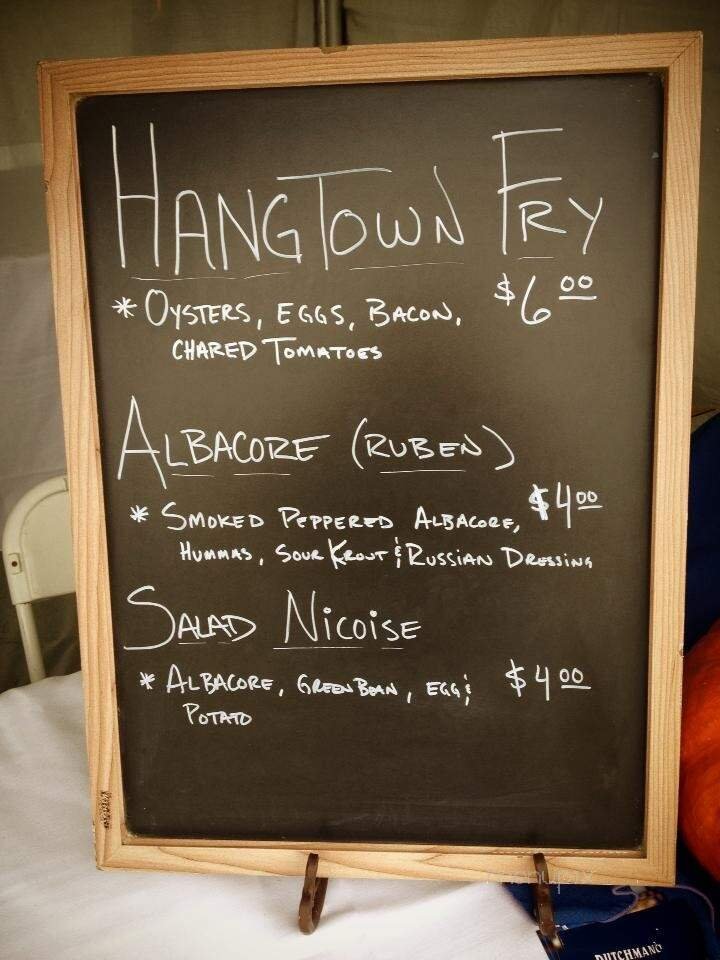 HANGTOWN FRY
* OYSTERS, EGGS, BACON, $6 00
CHARED TOMATOES
ALBACORE (RUBEN)
* SMOKED PEPPERED ALBACORE, $4 00
HUMMAS, SOUR KROUT & RUSSIAN DRESSING
SALAD NICOISE
* ALBACORE, GREEN BEAN, EGG & $4 00
POTATO
DUTCHMAN'S